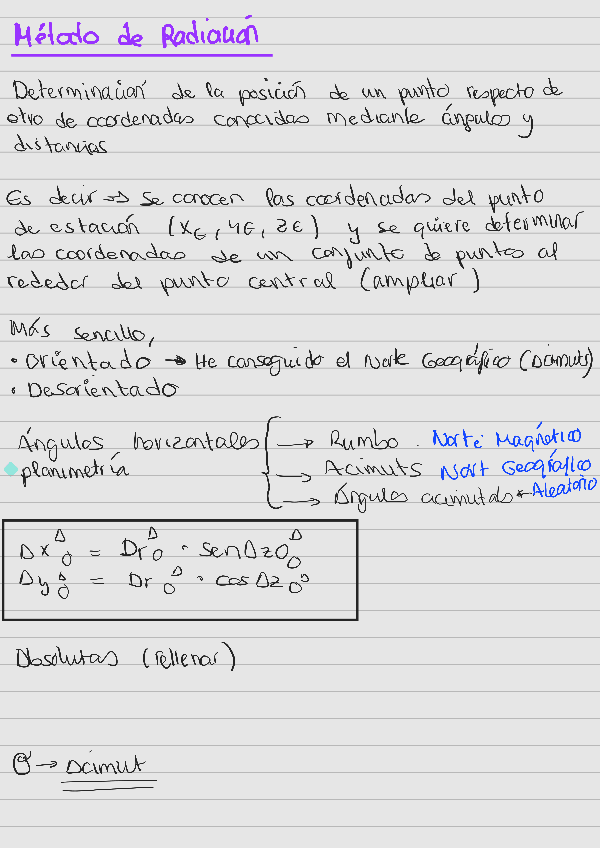 Método de Radiación
Determinación de la posición de un punto respecto de
otro de coordenadas conocidas mediante ángulos y
distancias
Es decir => se conocen las coordenadas del punto
de estación (XE, YE, ZE) y se quiere determinar
las coordenadas de un conjunto de puntos al
rededor del punto central (ampliar)
Más sencillo,
• Orientado → He conseguido el Norte Geográfico (Acimuts)
• Desorientado
Ángulos horizontales → Rumbo . Norte Magnético
planimetría → Acimuts Nort Geográfico
→ Ángulos acimutales Aleatorio
Δx_O^A = Dr_O^A · sen AzO_O^A
Δy_O^A = Dr_O^A · cos Az_O^A
Absolutas (rellenar)
→ Acimut